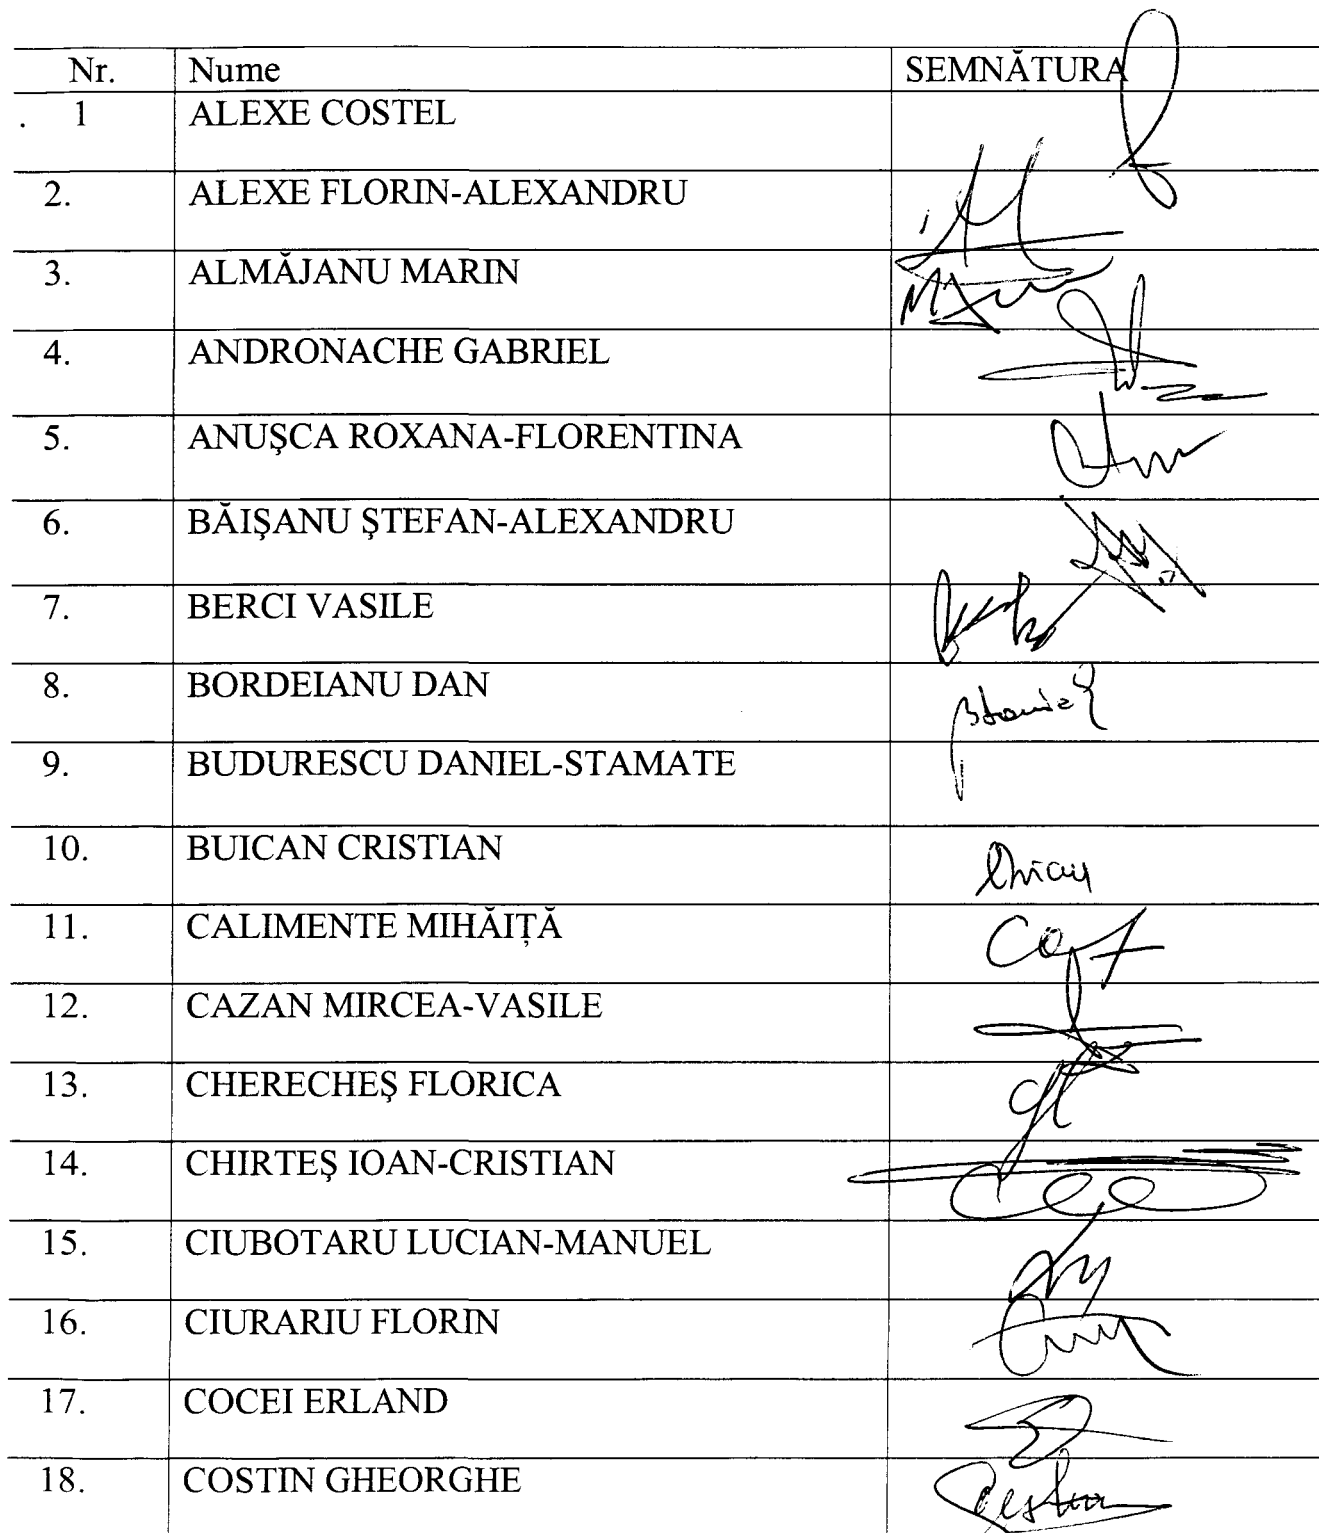 Nr. Nume SEMNĂTURA
. 1 ALEXE COSTEL
2. ALEXE FLORIN-ALEXANDRU
3. ALMĂJANU MARIN
4. ANDRONACHE GABRIEL
5. ANUŞCA ROXANA-FLORENTINA
6. BĂIŞANU ŞTEFAN-ALEXANDRU
7. BERCI VASILE
8. BORDEIANU DAN
9. BUDURESCU DANIEL-STAMATE
10. BUICAN CRISTIAN
11. CALIMENTE MIHĂIȚĂ
12. CAZAN MIRCEA-VASILE
13. CHERECHEŞ FLORICA
14. CHIRTEŞ IOAN-CRISTIAN
15. CIUBOTARU LUCIAN-MANUEL
16. CIURARIU FLORIN
17. COCEI ERLAND
18. COSTIN GHEORGHE